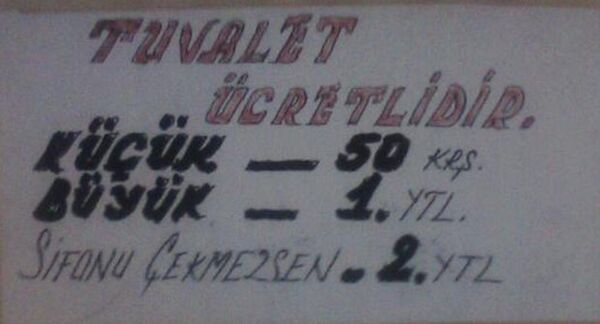 TUVALET
ÜCRETLİDİR.
KÜÇÜK — 50 KRŞ.
BÜYÜK — 1. YTL.
SİFONU ÇEKMEZSEN - 2. YTL